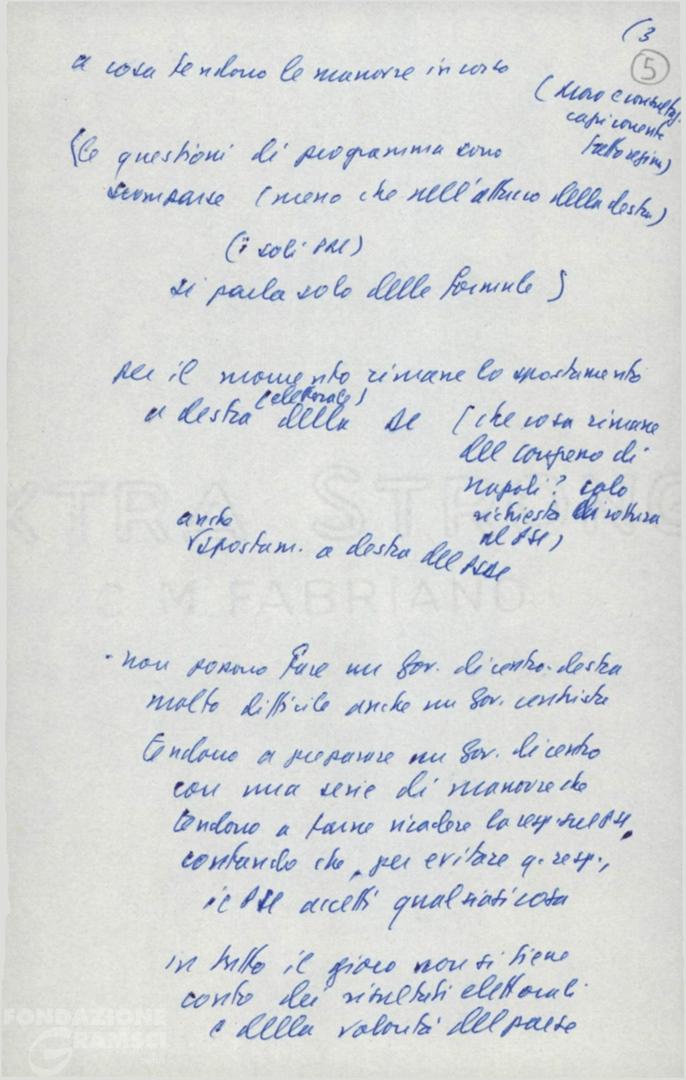 (3
5
a cosa tendono le manovre in corso
(Moro e consultaz.
capi corrente
sotto regime)
(le questioni di programma sono
scomparse (meno che nell'attacco della destra)
(i soli PRI)
si parla solo delle formule)
per il momento rimane lo spostamento
(elettorale)
a destra della DC (che cosa rimane
del congresso di
Napoli? solo
richiesta di rottura
al PSI)
anche
spostam. a destra del PSDI
· non possono fare un gov. di centro-destra
molto difficile anche un gov. centrista
tendono a preparare un gov. di centro
con una serie di manovre che
tendono a farne ricadere la resp. sul PSI,
contando che, per evitare q. resp.,
il PSI accetti qualsiasi cosa
in tutto il gioco non si tiene
conto dei risultati elettorali
e della volontà del paese
EXTRA STRONG
C M FABRIANO
FONDAZIONE
GRAMSCI